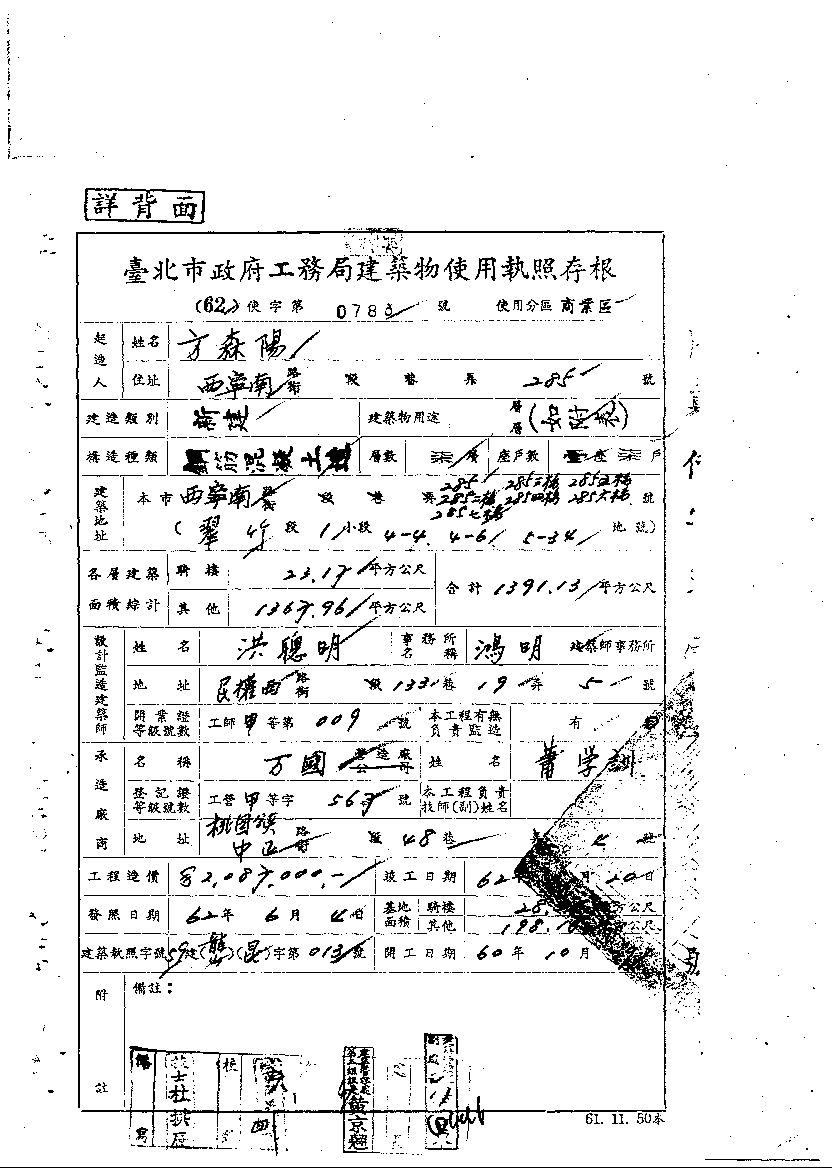 詳背面
臺北市政府工務局建築物使用執照存根
(62)使字第 078 號 使用分區 商業區
起造人 姓名 方森陽
住址 西寧南路街 段 巷 弄 285 號
建造類別 新建 建築物用途 層層(如附表)
構造種類 鋼筋混凝土造 層數 柒層 座戶數 壹座柒戶
建築地址 本市西寧南路街 段 巷 弄 285 285二樓 285三樓 285四樓 285五樓 285六樓 285七樓 號
( 翠竹 段 1 小段 4-4 4-6 5-34 地號)
各層建築面積綜計 騎樓 23.17 平方公尺 合計 1391.13 平方公尺
其他 1367.96 平方公尺
設計監造建築師 姓名 洪聰明 事務所名稱 鴻明 建築師事務所
地址 民權西路街 段 133 巷 19 弄 5 號
開業證等級號數 工師甲等第 009 號 本工程有無負責監造 有
承造廠商 名稱 万國 營造廠公司 姓名 蕭学訓
登記證等級號數 工營甲等字 567 號 本工程負責技師(副)姓名
地址 桃園鎮中正路街 段 48 巷 弄 4 號
工程造價 2,087,000.- 竣工日期 62年 月 20日
發照日期 62年 6月 4日 基地面積 騎樓 28. 平方公尺
其他 198. 平方公尺
建築執照字號 59建( )( )字第 013 號 開工日期 60年 10月
附註 備註:
繕寫 技士杜 校 黃京
61. 11. 50本